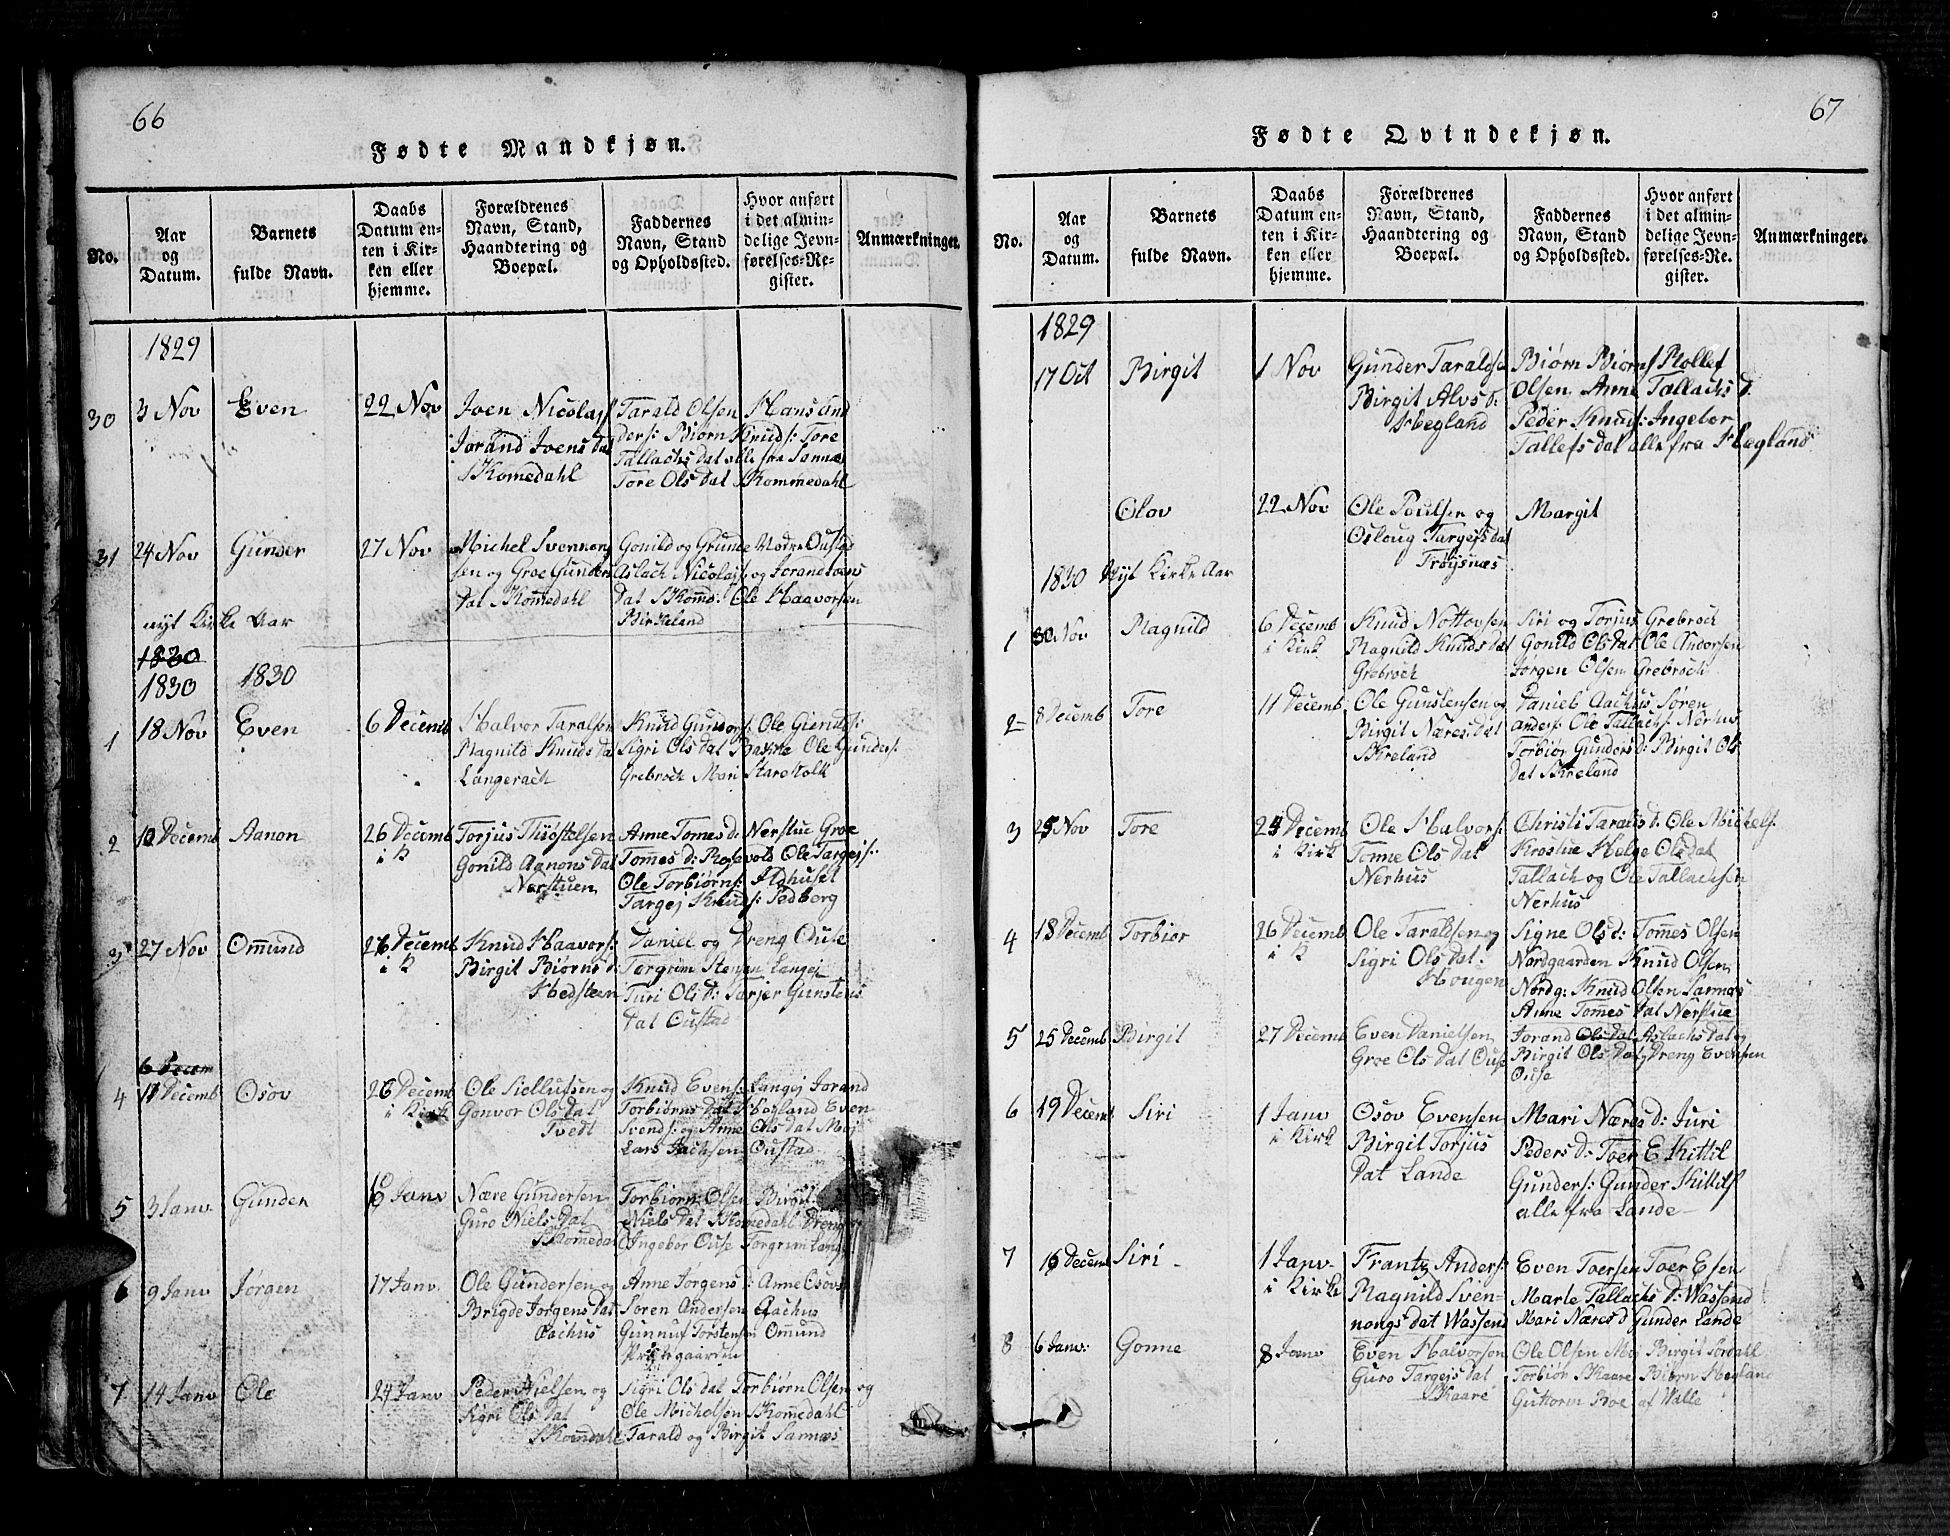 66
Fødte Mandkjøn.
No.
Aar
og
Datum.
Barnets
fulde Navn.
Daabs
Datum en-
ten i Kir-
ken eller
hjemme.
Forældrenes
Navn, Stand,
Haandtering og
Boepæl.
Faddernes
Navn, Stand
og Opholdssted.
Hvor anført
i det almin-
delige Jevn-
førelses-Re-
gister.
Anmærkninger.
1829
30 3 Nov Even 22 Nov
Iven Nicolajs
Jorand Ivens dat
Skomedahl
Tarald Olsen Hans And
ders: Biørn Knuds: Tore
Tallachs dat alle fra Sannæs
Tore Ols dat Skommedahl
31 24 Nov Gunder 27 Nov
Michel Svennong
sen og Groe Gunders
dat Skomedahl
Gonild og Grunde Nodre Oustad
Aslach Nicolajs og Jorand Ivens
dat Skomd: Ole Haavorsen
Birkeland
nyt Kirke Aar
1830
1830 1830
1 18 Nov Even 6 Decemb
Halvor Taralsen
Ragnild Knuds dat
Langerach
Knud Gunders: Ole Gieruls:
Sigri Ols dat Bakke Ole Gunders:
Grebroch Mari Staroholk
2 10 Decemb Aanon 26 Decemb
i K
Torjus Thiostelsen
Gonild Aanons dat
Nerstuen
Anne Tomes d: Nerstue Groe
Tomes d: Rosevold Ole Targejs:
Ole Torbiørns: Ildhuset
Targej Knuds: Sedberg
3 27 Nov Omund 26 Decemb
i K
Knud Haavors:
Birgit Biørns d:
Hedsteen
Daniel og Dreng Ouse
Torgrim Stensen Langej
Turi Ols d: Tarjer Gunstens
dat Oustad
6 Decem
4 11 Decemb Osov 26 Decemb
i Kirk
Ole Siellufsen og
Gonvor Ols dat
Tvedt
Knud Evens: Langej Jorand
Torbiørns dat Hægland Even
Svends: og Anne Ols dat Moj
Lars Aachsen Oustad
5 3 Janv. Gunder 10 Janv
Nære Gundersen
Guro Niels dat
Skomedal
Torbiørn Olsen Birgit
Niels dat Skomedahl Dreng
Ingebor Ouse Torgrim Langej
6 9 Janv Jørgen 17 Janv.
Ole Gundersen og
Brigde Jorgens dat
Aachus
Anne Jørgens d: Anne Osovs
Søren Andersen Aachus
Gunnuf Torstensen Omund
Prestegaarden
7 14 Janv Ole 24 Janv
Peder Nielsen og
Sigri Ols dat
Skomdahl
Sigri Ols dat Torbiørn Olsen og
Ole Michelsen Skomedahl
Tarald og Birgit Sannæs
67
Fødte Qvindekjøn.
No.
Aar
og
Datum.
Barnets
fulde Navn.
Daabs
Datum en-
ten i Kir-
ken eller
hjemme.
Forældrenes
Navn, Stand,
Haandtering og
Boepæl.
Faddernes
Navn, Stand
og Opholdssted.
Hvor anført
i det almin-
delige Jevn-
førelses-Re-
gister.
Anmærkninger.
1829
17 Oct Birgit 1 Nov
Gunder Taralds
Birgit Alvs d:
Hegland
Biørn Biørns Rollef
Olsen Anne Tallachs d.
Peder Knuds: Ingebor
Tallefs dat alle fra Hægland
Olov 22 Nov
Ole Poulsen og
Osloug Targejs dat
Frøysnæs
Margit
1830 Nyt Kirke Aar
1 30 Nov Ragnild 6 Decemb
i Kirk
Knud Nottovsen
Ragnild Knuds dat
Grebroch
Siri og Torjus Grebroch
Gonild Ols dat Ole Andersen
Jørgen Olsen Grebroch
2 8 Decemb Tore 11 Decemb
Ole Gunstensen og
Birgit Næres dat
Skreland
Daniel Aachus Søren
Anders: Ole Tallachs: Nerhus
Torbiør Gunders d: Birgit Ols
dat Skreland
3 25 Nov Tore 25 Decemb
i Kirk
Ole Halvors:
Tonne Ols dat
Nerhus
Christi Taralds d: Ole Michels:
Krostue Helge Ols dat
Tallach og Ole Tallachsen
Nerhus
4 18 Decemb Torbiør 26 Decemb
i K
Ole Taraldsen og
Sigri Ols dat:
Hougen
Signe Ols d: Tomes Olsen
Nordgaarden Knud Olsen
Nordg: Knud Olsen Sannæs
Anne Tomes dat Nerstue
5 25 Decemb Birgit 27 Decemb
Even Danielsen
Groe Ols dat Ouse
Jorand Ols dat Aslachs dat og
Birgit Ols dat, Dreng Evensen
Ouse
6 19 Decemb Siri 1 Janv
i Kirk
Osov Evensen
Birgit Torjus
dat Lande
Mari Næres d: Turi
Peders d: Toer E Kittil
Gunders: Gunder Kittils
alle fra Lande
7 16 Decemb Siri 1 Janv
i Kirke
Frantz Anders:
Ragnild Sven-
nongs dat Wassend
Even Toersen Toer Esen
Marte Tallachs d: Wassend
Mari Næres d Gunder Lande
8 6 Janv: Gonne 8 Janv
Even Halvorsen
Guro Targejs dat
Skaare
Ole Olsen Moj Birgit Sordahl
Torbiør Skaare Biørn Hegland
Guttorm Boe af Walle